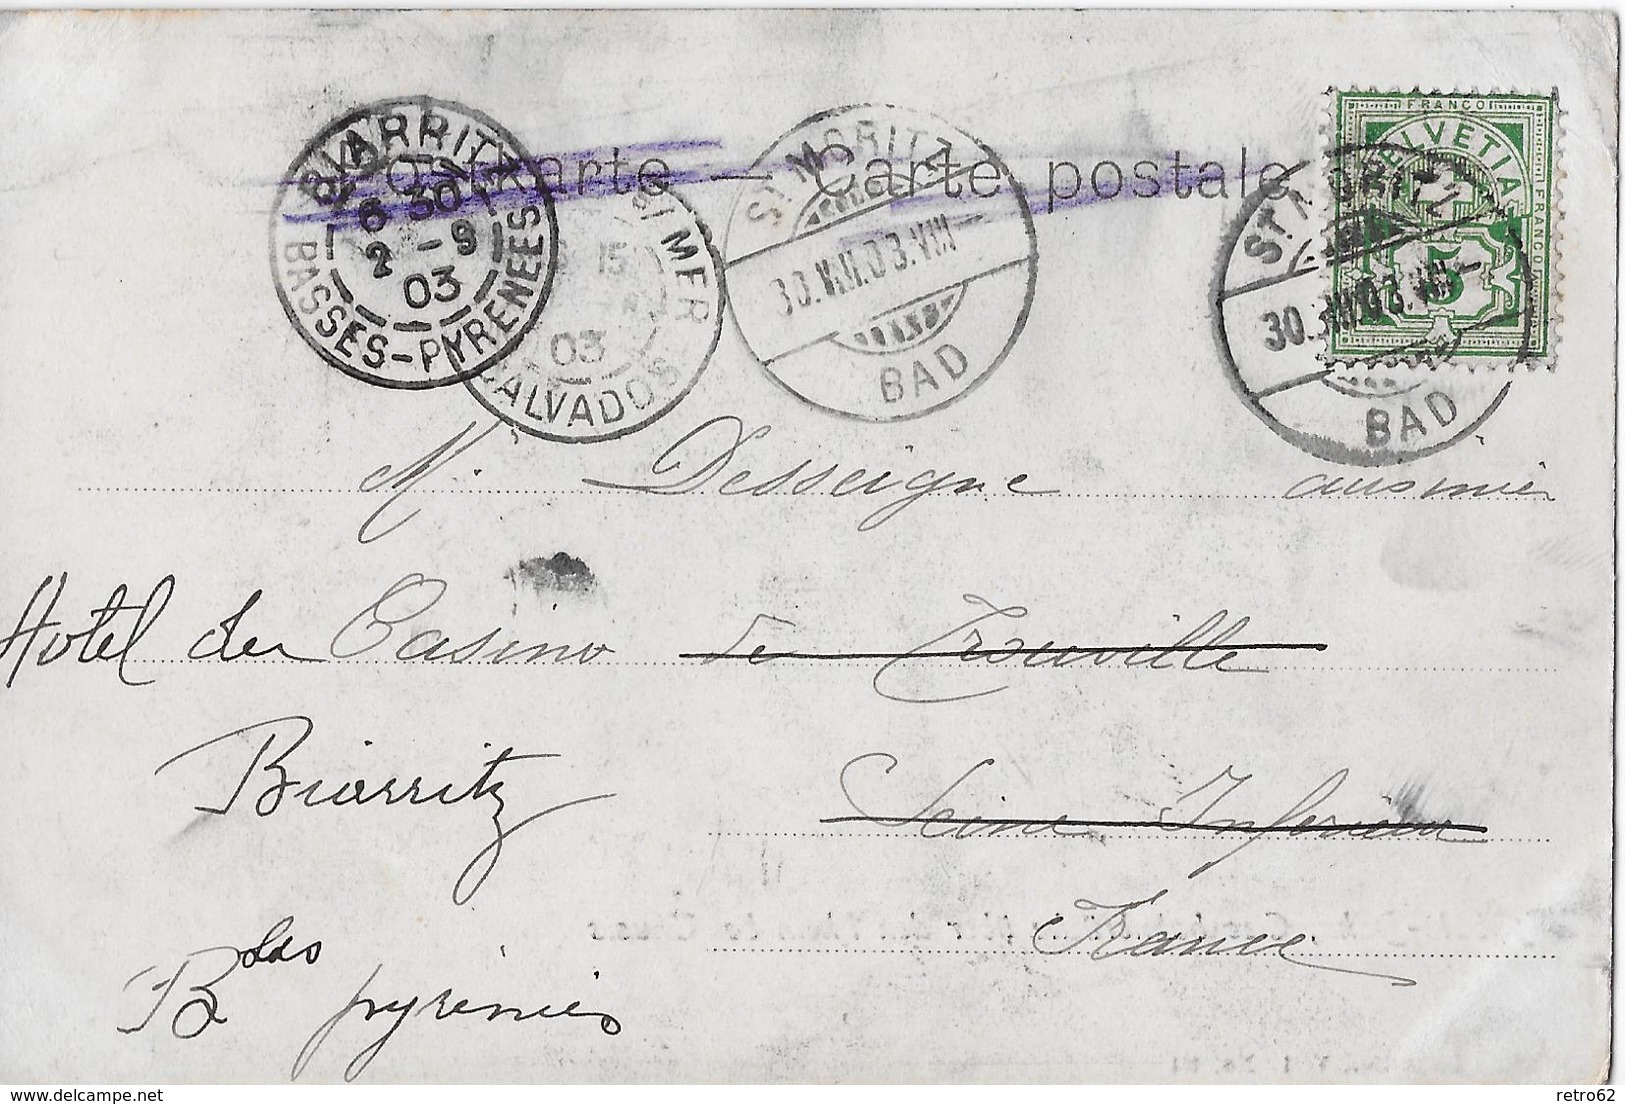 FRANCO
HELVETIA
FRANCO
5
Postkarte — Carte postale
BIARRITZ
6 30
2 - 9
03
BASSES-PYRENEES
S/MER
15
03
CALVADOS
ST. MORITZ
30.VIII.03.VIII-
BAD
ST. MORITZ
30.VIII.03.VIII-
BAD
M. Desseigne cuisinier
Hotel du Casino de Trouville
Biarritz
Seine Inferieure
France
Bses pyrénées
delcampe.net
retro62